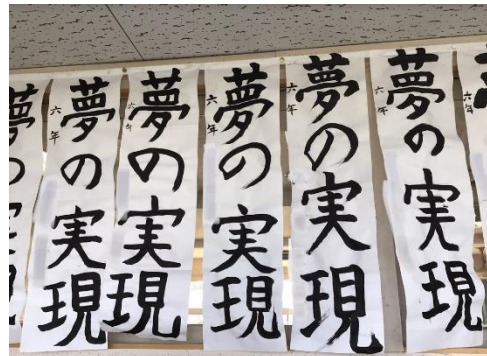 六年
夢の実現
六年
夢の実現
六年
夢の実現
六年
夢の実現
六年
夢の実現
六年
夢の実現